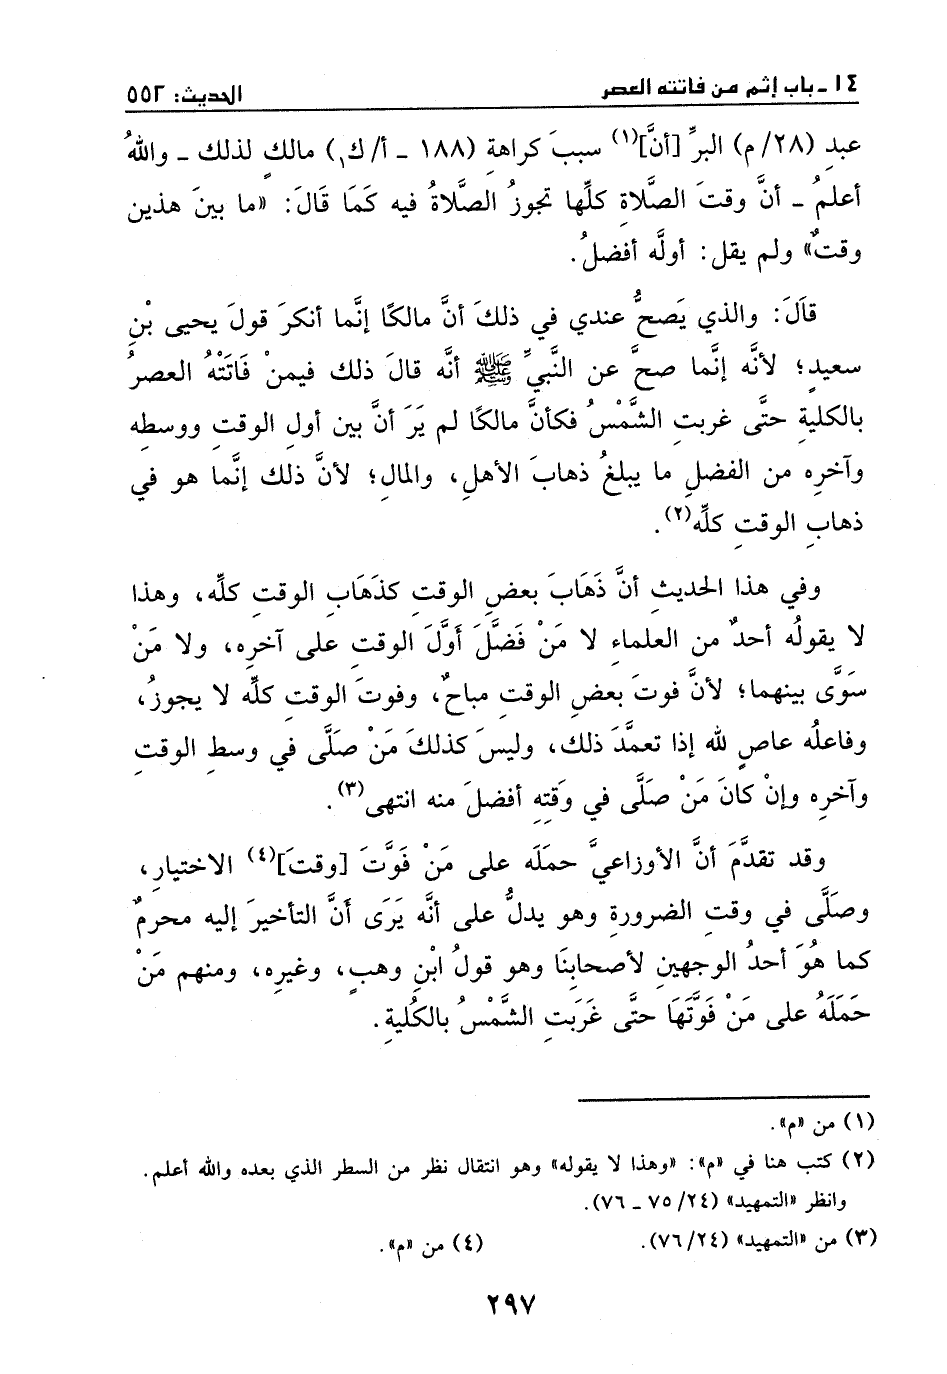 ١٤ - باب إثم من فاتته العصر
الحديث: ٥٥٢
عبدِ (٢٨/ م) البرِّ [أنَّ](١) سببَ كراهةِ (١٨٨ - أ/ ك١) مالكٍ لذلك - واللهُ
أعلمُ - أنَّ وقتَ الصَّلاةِ كلِّها تجوزُ الصَّلاةُ فيه كَمَا قَالَ: «ما بينَ هذين
وقتٌ» ولم يقل: أولَّه أفضلُ.
قاَلَ: والذي يَصحُّ عندي في ذلكَ أنَّ مالكًا إنَّما أنكرَ قولَ يحيى بْنِ
سعيدٍ؛ لأنَّه إنَّما صحَّ عن النَّبيِّ ﷺ أنَّه قالَ ذلك فيمنْ فَاتَتْهُ العصرُ
بالكليةِ حتَّى غربتِ الشَّمْسُ فكأنَّ مالكًا لم يَرَ أنَّ بين أولِ الوقتِ ووسطِه
وآخرِه من الفضلِ ما يبلغُ ذهابَ الأهلِ، والمالِ؛ لأنَّ ذلك إنَّما هو في
ذهابِ الوقتِ كلِّه(٢).
وفي هذا الحديثِ أنَّ ذَهَابَ بعضِ الوقتِ كذَهَابِ الوقتِ كلِّه، وهذا
لا يقولُه أحدٌ من العلماءِ لا مَنْ فَضَّلَ أَوَّلَ الوقتِ على آخرِه، ولا مَنْ
سَوَّى بينهما؛ لأنَّ فوتَ بعضِ الوقتِ مباحٌ، وفوتَ الوقتِ كلِّه لا يجوزُ،
وفاعلُه عاصٍ للهِ إذا تعمَّدَ ذلك، وليسَ كذلكَ مَنْ صلَّى في وسطِ الوقتِ
وآخرِه وإنْ كانَ مَنْ صَلَّى في وَقتِهِ أفضلَ منه انتهى(٣).
وقد تقدَّمَ أنَّ الأوزاعيَّ حملَه على مَنْ فَوَّتَ [وقتَ](٤) الاختيارِ،
وصلَّى في وقتِ الضرورةِ وهو يدلُّ على أنَّه يَرَى أنَّ التأخيرَ إليه محرمٌ
كما هُوَ أحدُ الوجهينِ لأصحابِنَا وهو قولُ ابْنِ وهبٍ، وغيرِه، ومنهم مَنْ
حَمَلَهُ على مَنْ فَوَّتَهَا حتَّى غَرَبَتِ الشَّمْسُ بالكُليةِ.
(١) من «م».
(٢) كتب هنا في «م»: «وهذا لا يقوله» وهو انتقال نظر من السطر الذي بعده والله أعلم.
وانظر «التمهيد» (٢٤/ ٧٥ - ٧٦).
(٣) من «التمهيد» (٢٤/ ٧٦).
(٤) من «م».
٢٩٧